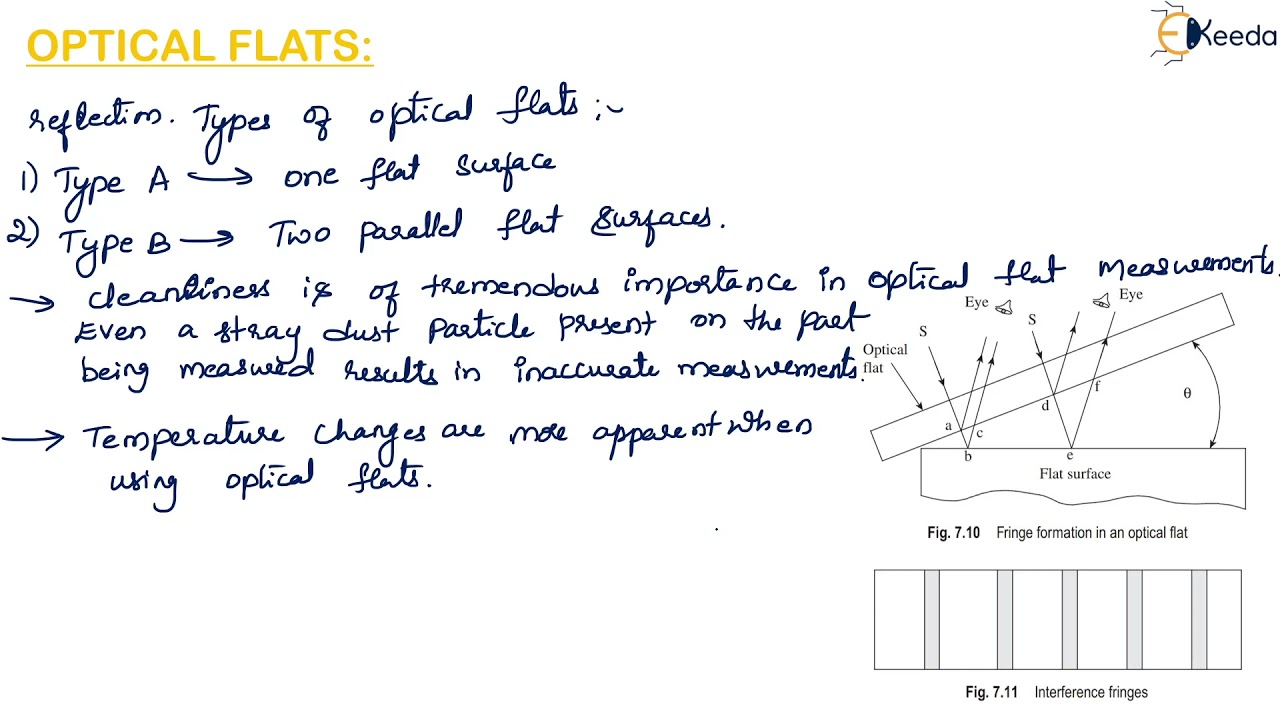 OPTICAL FLATS:
EKeeda
reflection. Types of optical flats :~
1) Type A → one flat surface
2) Type B → Two parallel flat surfaces.
→ cleanliness is of tremendous importance in optical flat measurements.
Even a stray dust particle present on the part
being measured results in inaccurate measurements.
→ Temperature changes are more apparent when
using optical flats.
Eye
Eye
S
S
Optical
flat
θ
a
b
c
d
e
f
Flat surface
Fig. 7.10 Fringe formation in an optical flat
Fig. 7.11 Interference fringes